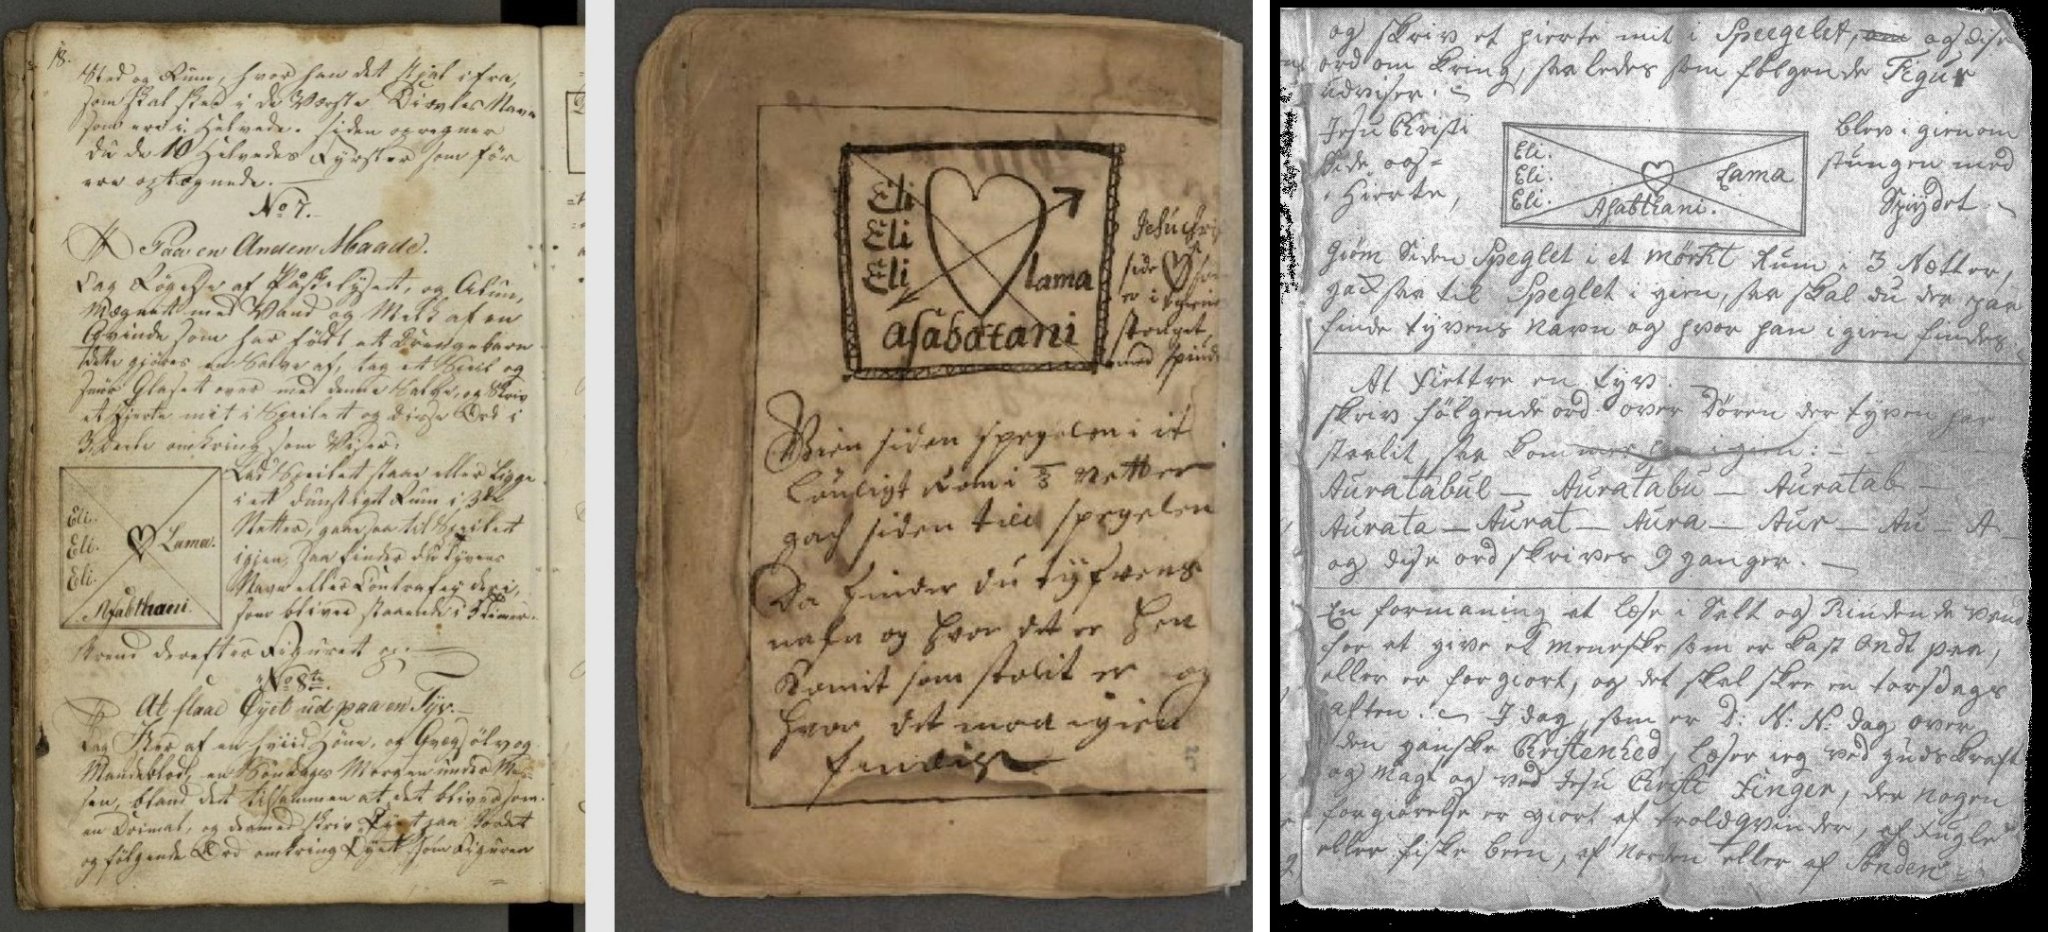 18.
Sted og Rum, hvor han det stjal ifra,
som skal skee i de Værste Diævles Navn
som ere i Helvede. siden opregner
du de 10 Helvedes Fyrster som før
ere optegnede.
No 7.
Paa en Anden Maade.
Tag Røgelse af Paaskelyset, og Alun,
Mænget med Vand og Melk af en
Qvinde som har født et Drengebarn
dette gjøres en Salve af, tag et Speil og
smør Glaset over med denne Salve, og Skriv
et Hjerte mit i Speilet og disse Ord i
omkring som Viser:
Eli.
Eli.
Eli.
Lama.
Asabthani
Lad Speilet staae eller ligge
i ett Rum i 3de
Netter, gaae saa til Speilet
igjen, saa finder du Tyvens
Navn eller Contrafey deri,
som bliver staaende i Timer.
derefter Figuret
No 8te
At slaae Øyet ud paa en Tyv.
Tag af en Hviid Høne, og Qvegsølv og
Mandeblod, en Søndags Morgen under Mes-
sen, bland det tilsammen at det bliver som
en og dermed skriv Øyet paa
og følgende Ord omkring Øyet som Figuren
Eli
Eli
Eli
lama
asabatani
Jesu Chri
side
er i
stonget
med spiud
siden spegelen i it
Rom i 3 netter
gach siden till spegelen
Da finder du tyfvens
nafn og hvor det er hen
Komit som stolit er og
hvor det maa igien
findis
og skriv et hierte mit i Speegelet, og dise
ord om kring, saa ledes som følgende Figur
udviser.
Jesu Christi
Side og
Hierte,
Eli.
Eli.
Eli.
Lama
Asabthani.
blev i gienom
stungen med
Spydet
Giøm Siden Speglet i et mørkt Rum i 3 Nætter,
gak saa til Speglet i gien, saa skal du der paa
finde tyvens navn og hvor han igien findes.
At fiettre en tyv.
skriv følgende ord over Døren der tyven har
staalit, saa kommer i gien:
Auratabul — Auratabu — Auratab —
Aurata — Aurat — Aura — Aur — Au — A —
og dise ord skrives 9 ganger.
En formaning at læse i Salt og Rindende vand
for at give et Meneske som er kast Ondt paa,
eller er forgiort, og det skal skee en torsdags
aften. I dag, som er D: N: N: dag over
den ganske Christenhed, læser ieg ved guds kraft
og Magt og ved Jesu Christi Finger, der nogen
forgiørelse er giort af troldqvinder, af Fugle
eller fiske been, af Norden eller af Sønden